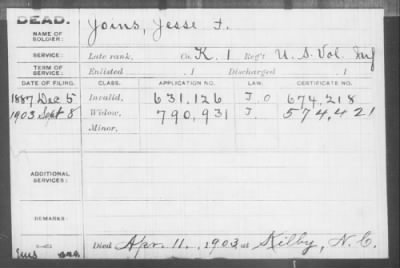 DEAD.
NAME OF SOLDIER: Joins, Jesse F.
SERVICE: Late rank, Co. K. 1 Reg't U. S. Vol. Inf
TERM OF SERVICE: Enlisted , 1 Discharged , 1
DATE OF FILING. CLASS. APPLICATION NO. LAW. CERTIFICATE NO.
1887 Dec 5 Invalid, 631,126 J. O 674,218
1903 Sept 8 Widow, 790,931 J. 574,421
Minor,
ADDITIONAL SERVICES:
REMARKS:
Died Apr. 11, 1903 at Kilby, N. C.